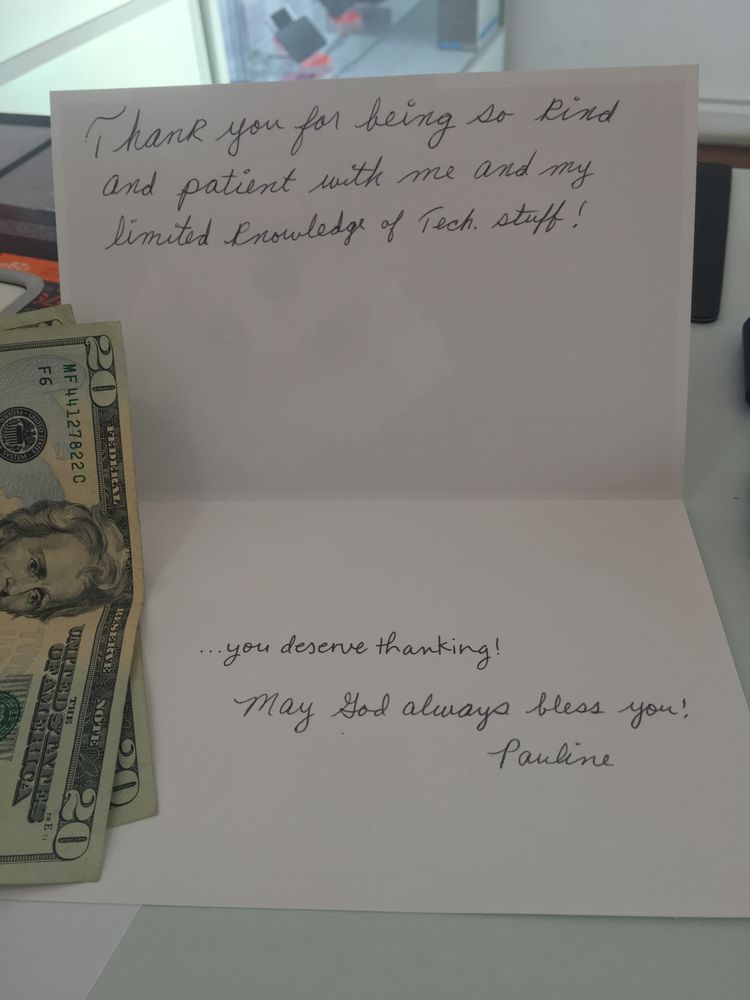 Thank you for being so kind
and patient with me and my
limited knowledge of Tech. stuff!
...you deserve thanking!
May God always bless you!
Pauline
20
MF44127822C
F6
FEDERAL
RESERVE
NOTE
THE
UNITED STATES
OF AMERICA
20
20